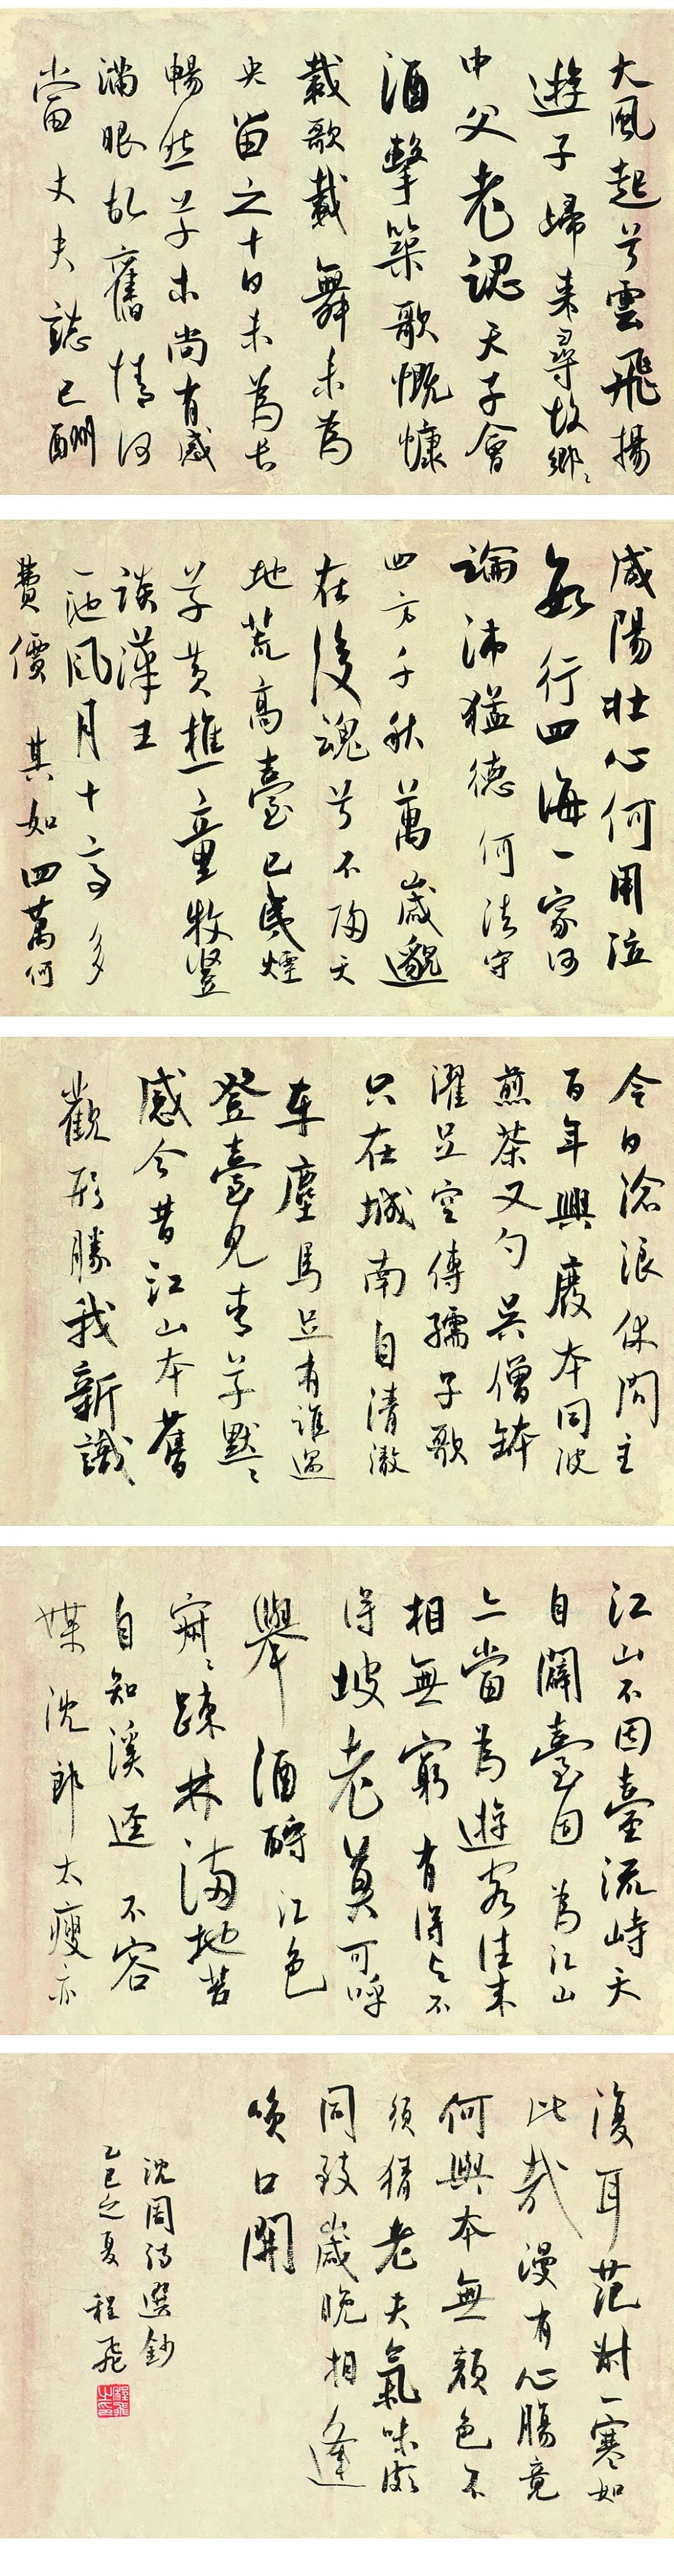 大風起兮雲飛揚
遊子歸來尋故鄉鄉
中父老認天子會
酒擊築歌慨慷
載歌載舞未為
央留之十日未為長
暢然草木尚有感
滿眼故舊情何
當丈夫誌已酬
咸陽壯心何用泣
數行四海一家何
論沛猛德何法守
四方千秋萬歲邈
在後魂兮不歸天
地荒高臺已與煙
草黃樵童牧豎
談漢王
一池風月十畝多
費價其如四萬何
今日滄浪休問主
百年興廢本同波
煎茶又勺吳僧缽
濯足空傳孺子歌
只在城南自清澈
車塵馬足有誰過
登臺見青草默默
感今昔江山本舊
觀形勝我新識
江山不因臺流峙天
自闢臺因為江山
亦當為遊客往來
相無窮有得與不
得坡老莫可呼
舉酒酹江色
寂寂疎林滿地苔
自知溪逕不容
媒沈郎太瘦亦
復耳范叔一寒如
此哉漫有心腸竟
何與本無顏色不
須猜老夫氣味頗
同致歲晚相逢
喚口開
沈周詩選鈔
乙巳之夏 程飛